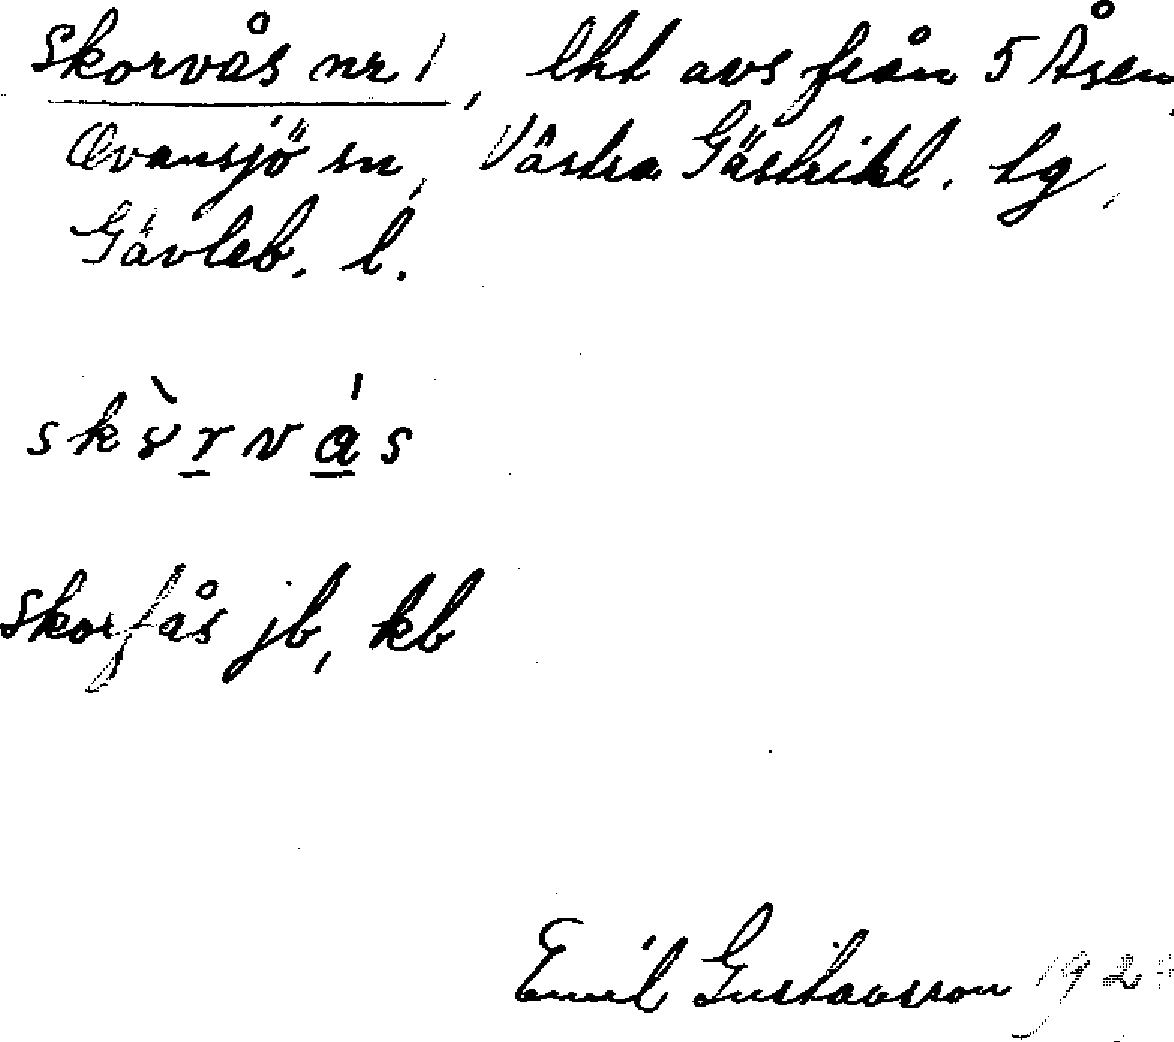 Skorvås nr 1, lht avs från 5 Åsen
Ovansjö sn, Västra Gästrikl. tg,
Gävleb. l.
skɤ̀r̲vá̲s
Skorfås jb, kb
Emil Gustavsson